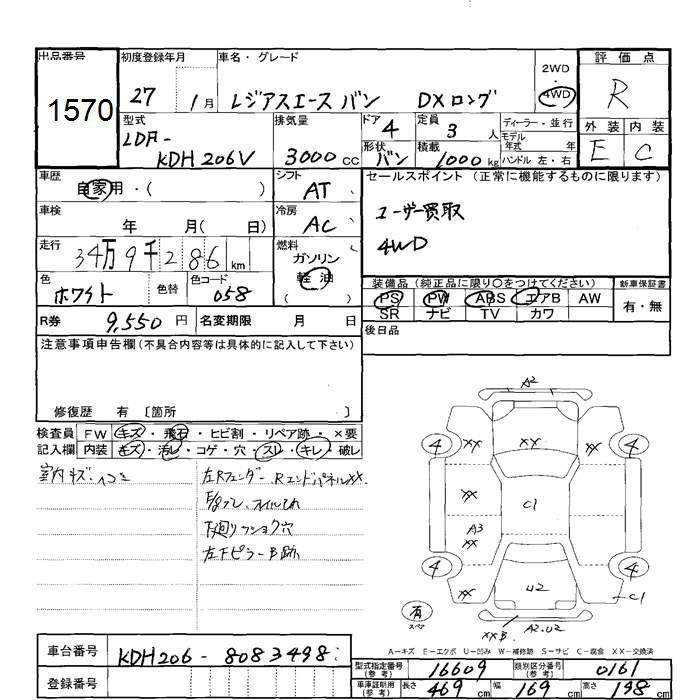 出品番号 初度登録年月 車名・グレード 評価点
1570 27 1月 レジアスエース バン DXロング 2WD・4WD R
型式 排気量 ドア 4 定員 3人 ディーラー・並行 外装 内装
LDF- モデル年式 年 E C
KDH206V 3000cc 形状 バン 積載 1000kg ハンドル 左・右
車歴 シフト セールスポイント (正常に機能するものに限ります)
自家用・( ) AT
車検 冷房 ユーザー買取
年 月( 日) AC 4WD
走行 燃料
34万9千286km ガソリン
色 色替 色コード 軽油 装備品(純正品に限り○をつけてください) 新車保証書
ホワイト 058 ( ) PS PW ABS エアB AW 有・無
SR ナビ TV カワ
R券 9,550円 名変期限 月 日 後日品
注意事項申告欄(不具合内容等は具体的に記入して下さい)
修復歴 有 〔箇所 〕
検査員 FW キズ・飛石・ヒビ割・リペア跡・×要
記入欄 内装 キズ・汚レ・コゲ・穴・スレ・キレ・破レ
室内キズ・
左Rフェンダー、RエンドパネルXX.
オイルもれ
下廻り
左Fピラー B跡
A2
4 XX XY 4
XX C1
A3
XX
4 XX U2 C1 4
有
スペア
XXB A2.U2
A-キズ E-エクボ U-凹み W-補修跡 S-サビ C-腐食 XX-交換済
車台番号 KDH206-8083498
登録番号
型式指定番号(参考) 16609 類別区分番号(参考) 0161
車庫証明用(参考) 長さ 469cm 幅 169cm 高さ 198cm